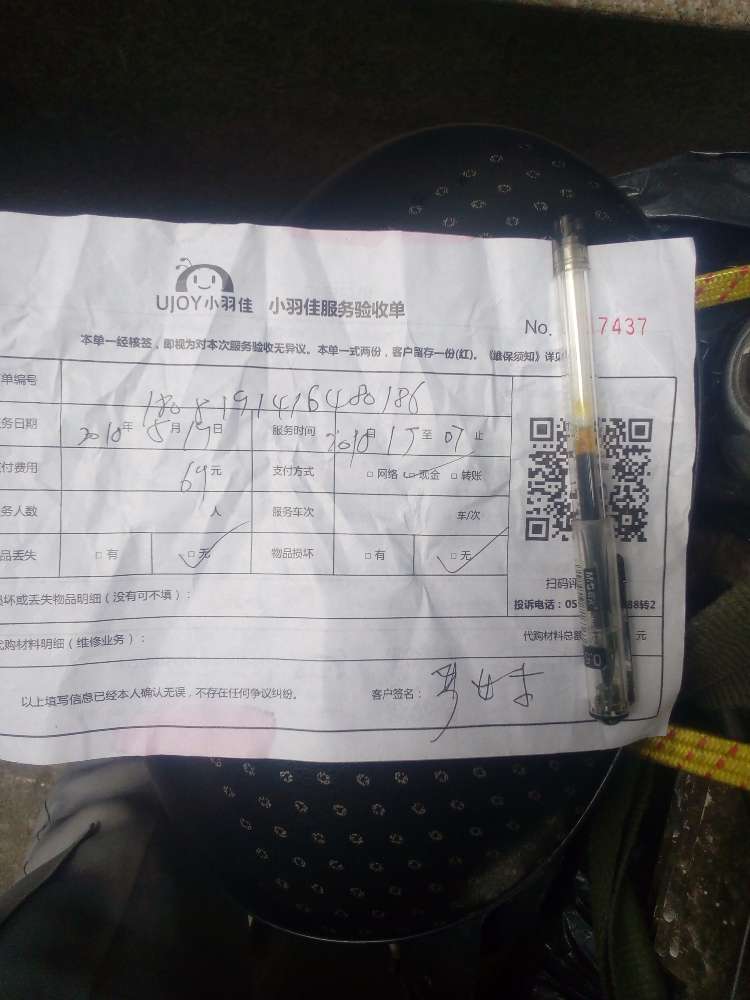 UJOY小羽佳 小羽佳服务验收单
No. 7437
本单一经核签，即视为对本次服务验收无异议。本单一式两份，客户留存一份(红)。《维保须知》详见
单编号 180819141648086
务日期 年8月19日 服务时间 至 07 止
付费用 69元 支付方式 □网络 □现金 □转账
务人数 人 服务车次 车/次
品丢失 □有 □无 物品损坏 □有 □无
扫码评
损坏或丢失物品明细（没有可不填）：
投诉电话：05 88转2
代购材料明细（维修业务）： 代购材料总额 元
以上填写信息已经本人确认无误，不存在任何争议纠纷。 客户签名：